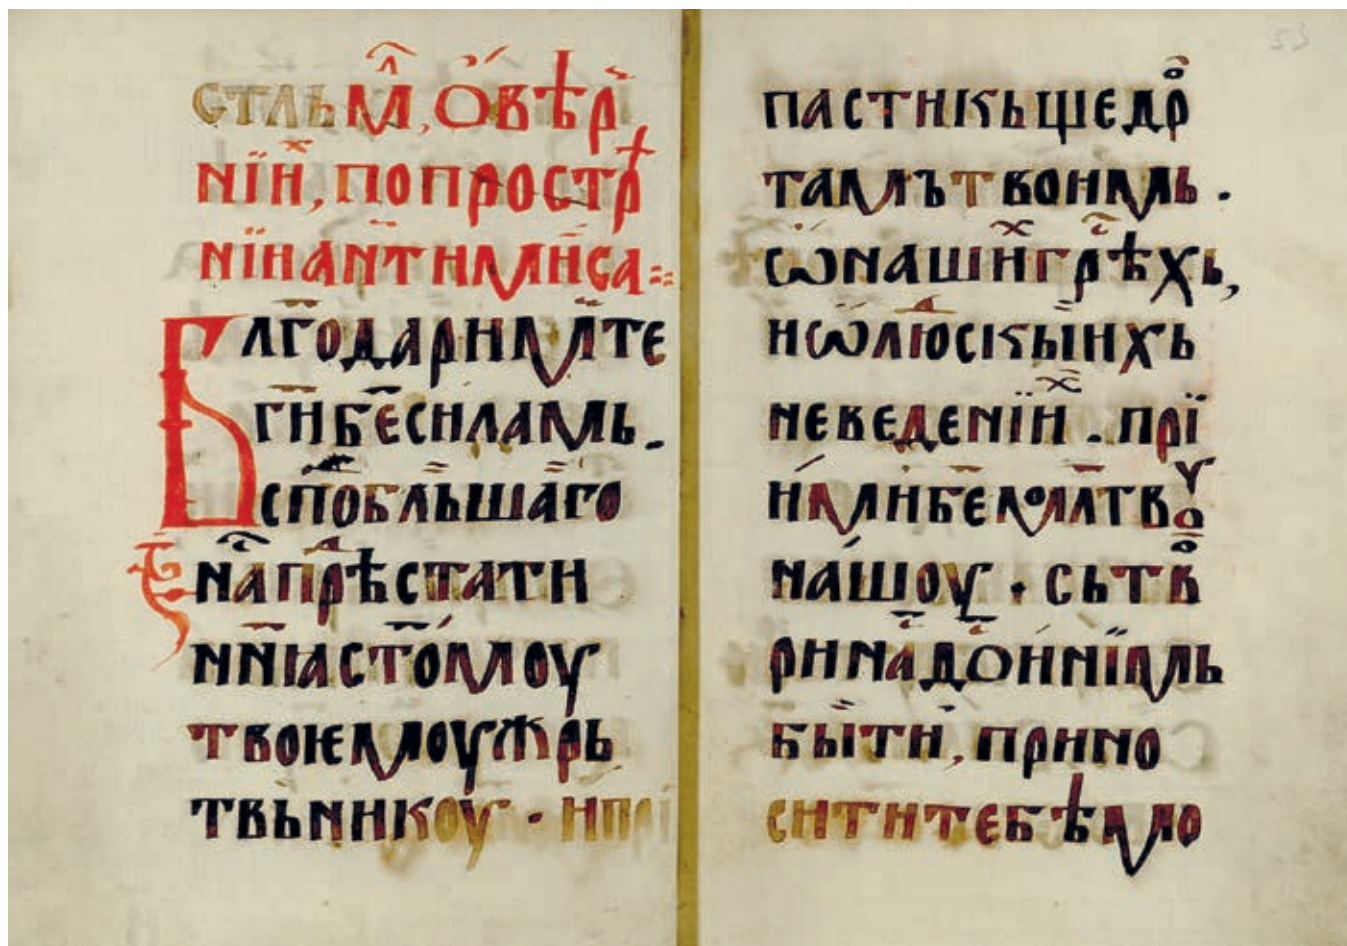 стлѣм҃, ѡ҆вѣр
нїи҃, попростр
нїи҃антимин҃са
Бл҃годаримⷨте
ги҃бе҃силамь.
сп҃обльшаго
на҃прѣстати
нн҃ꙗсто҃моу
твоѥмоужрь
твьникоу · ипрї
пастикьщедрⷪ
тамьтвоимь.
ѡнашихⷯгрѣхь,
иѡлю҃скыихь
неведенїихⷯ. прї
и҆мливемо҃лтвꙋ
на́шоу · сьтвⷪ
рина҃до҃и́нїимь
бы҃ти, прино
ститебѣмо